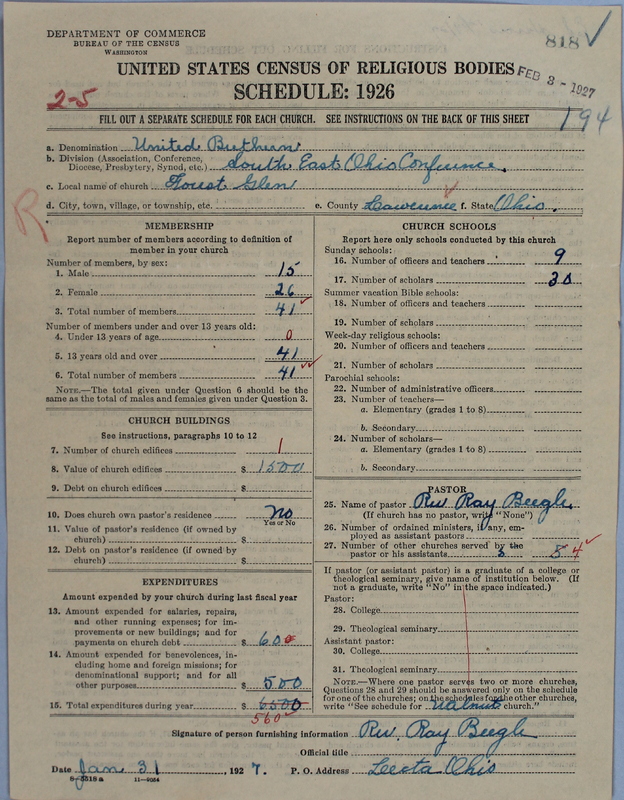 DEPARTMENT OF COMMERCE
BUREAU OF THE CENSUS
WASHINGTON
818 ✓
UNITED STATES CENSUS OF RELIGIOUS BODIES
FEB 3 - 1927
SCHEDULE: 1926
2-5
194
FILL OUT A SEPARATE SCHEDULE FOR EACH CHURCH. SEE INSTRUCTIONS ON THE BACK OF THIS SHEET
a. Denomination United Brethren
b. Division (Association, Conference, Diocese, Presbytery, Synod, etc.) South East Ohio Conference.
c. Local name of church Forest Glen
d. City, town, village, or township, etc. e. County Lawrence f. State Ohio.
R
MEMBERSHIP
Report number of members according to definition of
member in your church
Number of members, by sex:
1. Male 15
2. Female 26
3. Total number of members 41 ✓
Number of members under and over 13 years old:
4. Under 13 years of age 0
5. 13 years old and over 41
6. Total number of members 41 ✓✓
NOTE.—The total given under Question 6 should be
same as the total of males and females given under Question 3.
CHURCH BUILDINGS
See instructions, paragraphs 10 to 12
7. Number of church edifices 1
8. Value of church edifices $ 1500
9. Debt on church edifices $
10. Does church own pastor's residence No
Yes or No
11. Value of pastor's residence (if owned by
church) $
12. Debt on pastor's residence (if owned by
church) $
EXPENDITURES
Amount expended by your church during last fiscal year
13. Amount expended for salaries, repairs,
and other running expenses; for im-
provements or new buildings; and for
payments on church debt $ 600
14. Amount expended for benevolences, in-
cluding home and foreign missions; for
denominational support; and for all
other purposes $ 500
15. Total expenditures during year $ 6500
560 ✓
CHURCH SCHOOLS
Report here only schools conducted by this church
Sunday schools:
16. Number of officers and teachers 9
17. Number of scholars 30
Summer vacation Bible schools:
18. Number of officers and teachers
19. Number of scholars
Week-day religious schools:
20. Number of officers and teachers
21. Number of scholars
Parochial schools:
22. Number of administrative officers
23. Number of teachers—
a. Elementary (grades 1 to 8)
b. Secondary
24. Number of scholars—
a. Elementary (grades 1 to 8)
b. Secondary
PASTOR
25. Name of pastor Rev Ray Beegle
(If church has no pastor, write "None")
26. Number of ordained ministers, if any, em-
ployed as assistant pastors
27. Number of other churches served by the
pastor or his assistants 3 4 ✓
If pastor (or assistant pastor) is a graduate of a college or
theological seminary, give name of institution below. (If
not a graduate, write "No" in the space indicated.)
Pastor:
28. College
29. Theological seminary
Assistant pastor:
30. College
31. Theological seminary
NOTE.—Where one pastor serves two or more churches,
Questions 28 and 29 should be answered only on the schedule
for one of the churches; on the schedules for the other churches,
write "See schedule for Walnut church."
Signature of person furnishing information Rev. Ray Beegle
Official title
Date Jan 31, 1927. P. O. Address Leecta Ohio
8-5518 a 11-9034